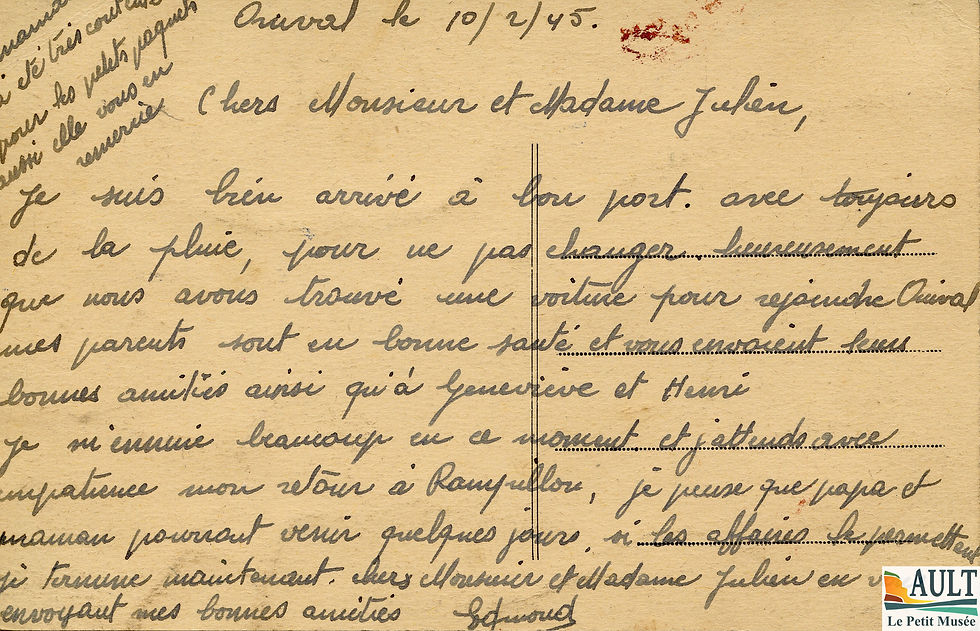 maman
a été très contente
pour les petits paquets
aussi elle vous en
remercie
Onival le 10/2/45.
Chers Monsieur et Madame Julien,
Je suis bien arrivé à bon port. avec toujours
de la pluie, pour ne pas changer. heureusement
que nous avons trouvé une voiture pour rejoindre Onival
mes parents sont en bonne santé et vous envoient leurs
bonnes amitiés ainsi qu'à Geneviève et Henri
je m'ennuie beaucoup en ce moment et j'attends avec
impatience mon retour à Rampillon, je pense que papa et
maman pourront venir quelques jours, si les affaires le permettent
je termine maintenant. chers Monsieur et Madame Julien en
envoyant mes bonnes amitiés Edmond
AULT
Le Petit Musée